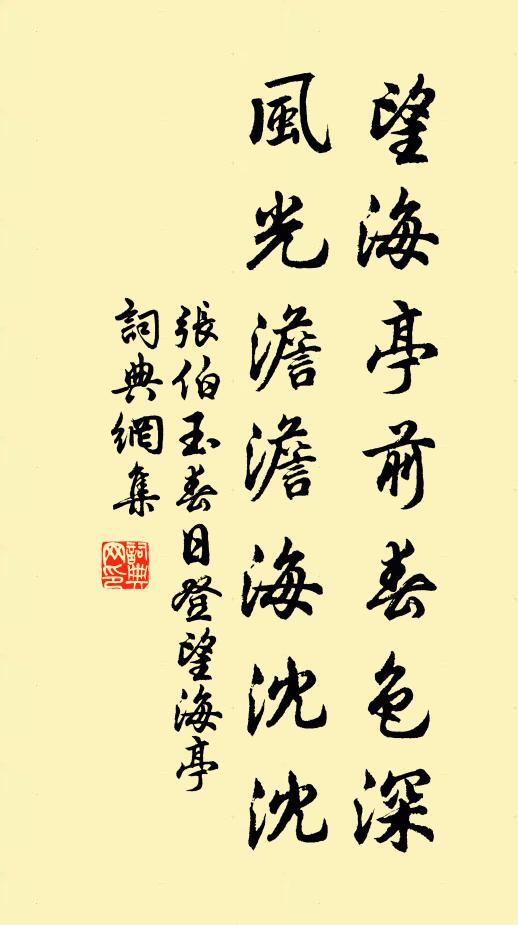 望海亭前春色深
風光澹澹海沈沈
張伯玉春日登望海亭
詞典網集
詞典网印